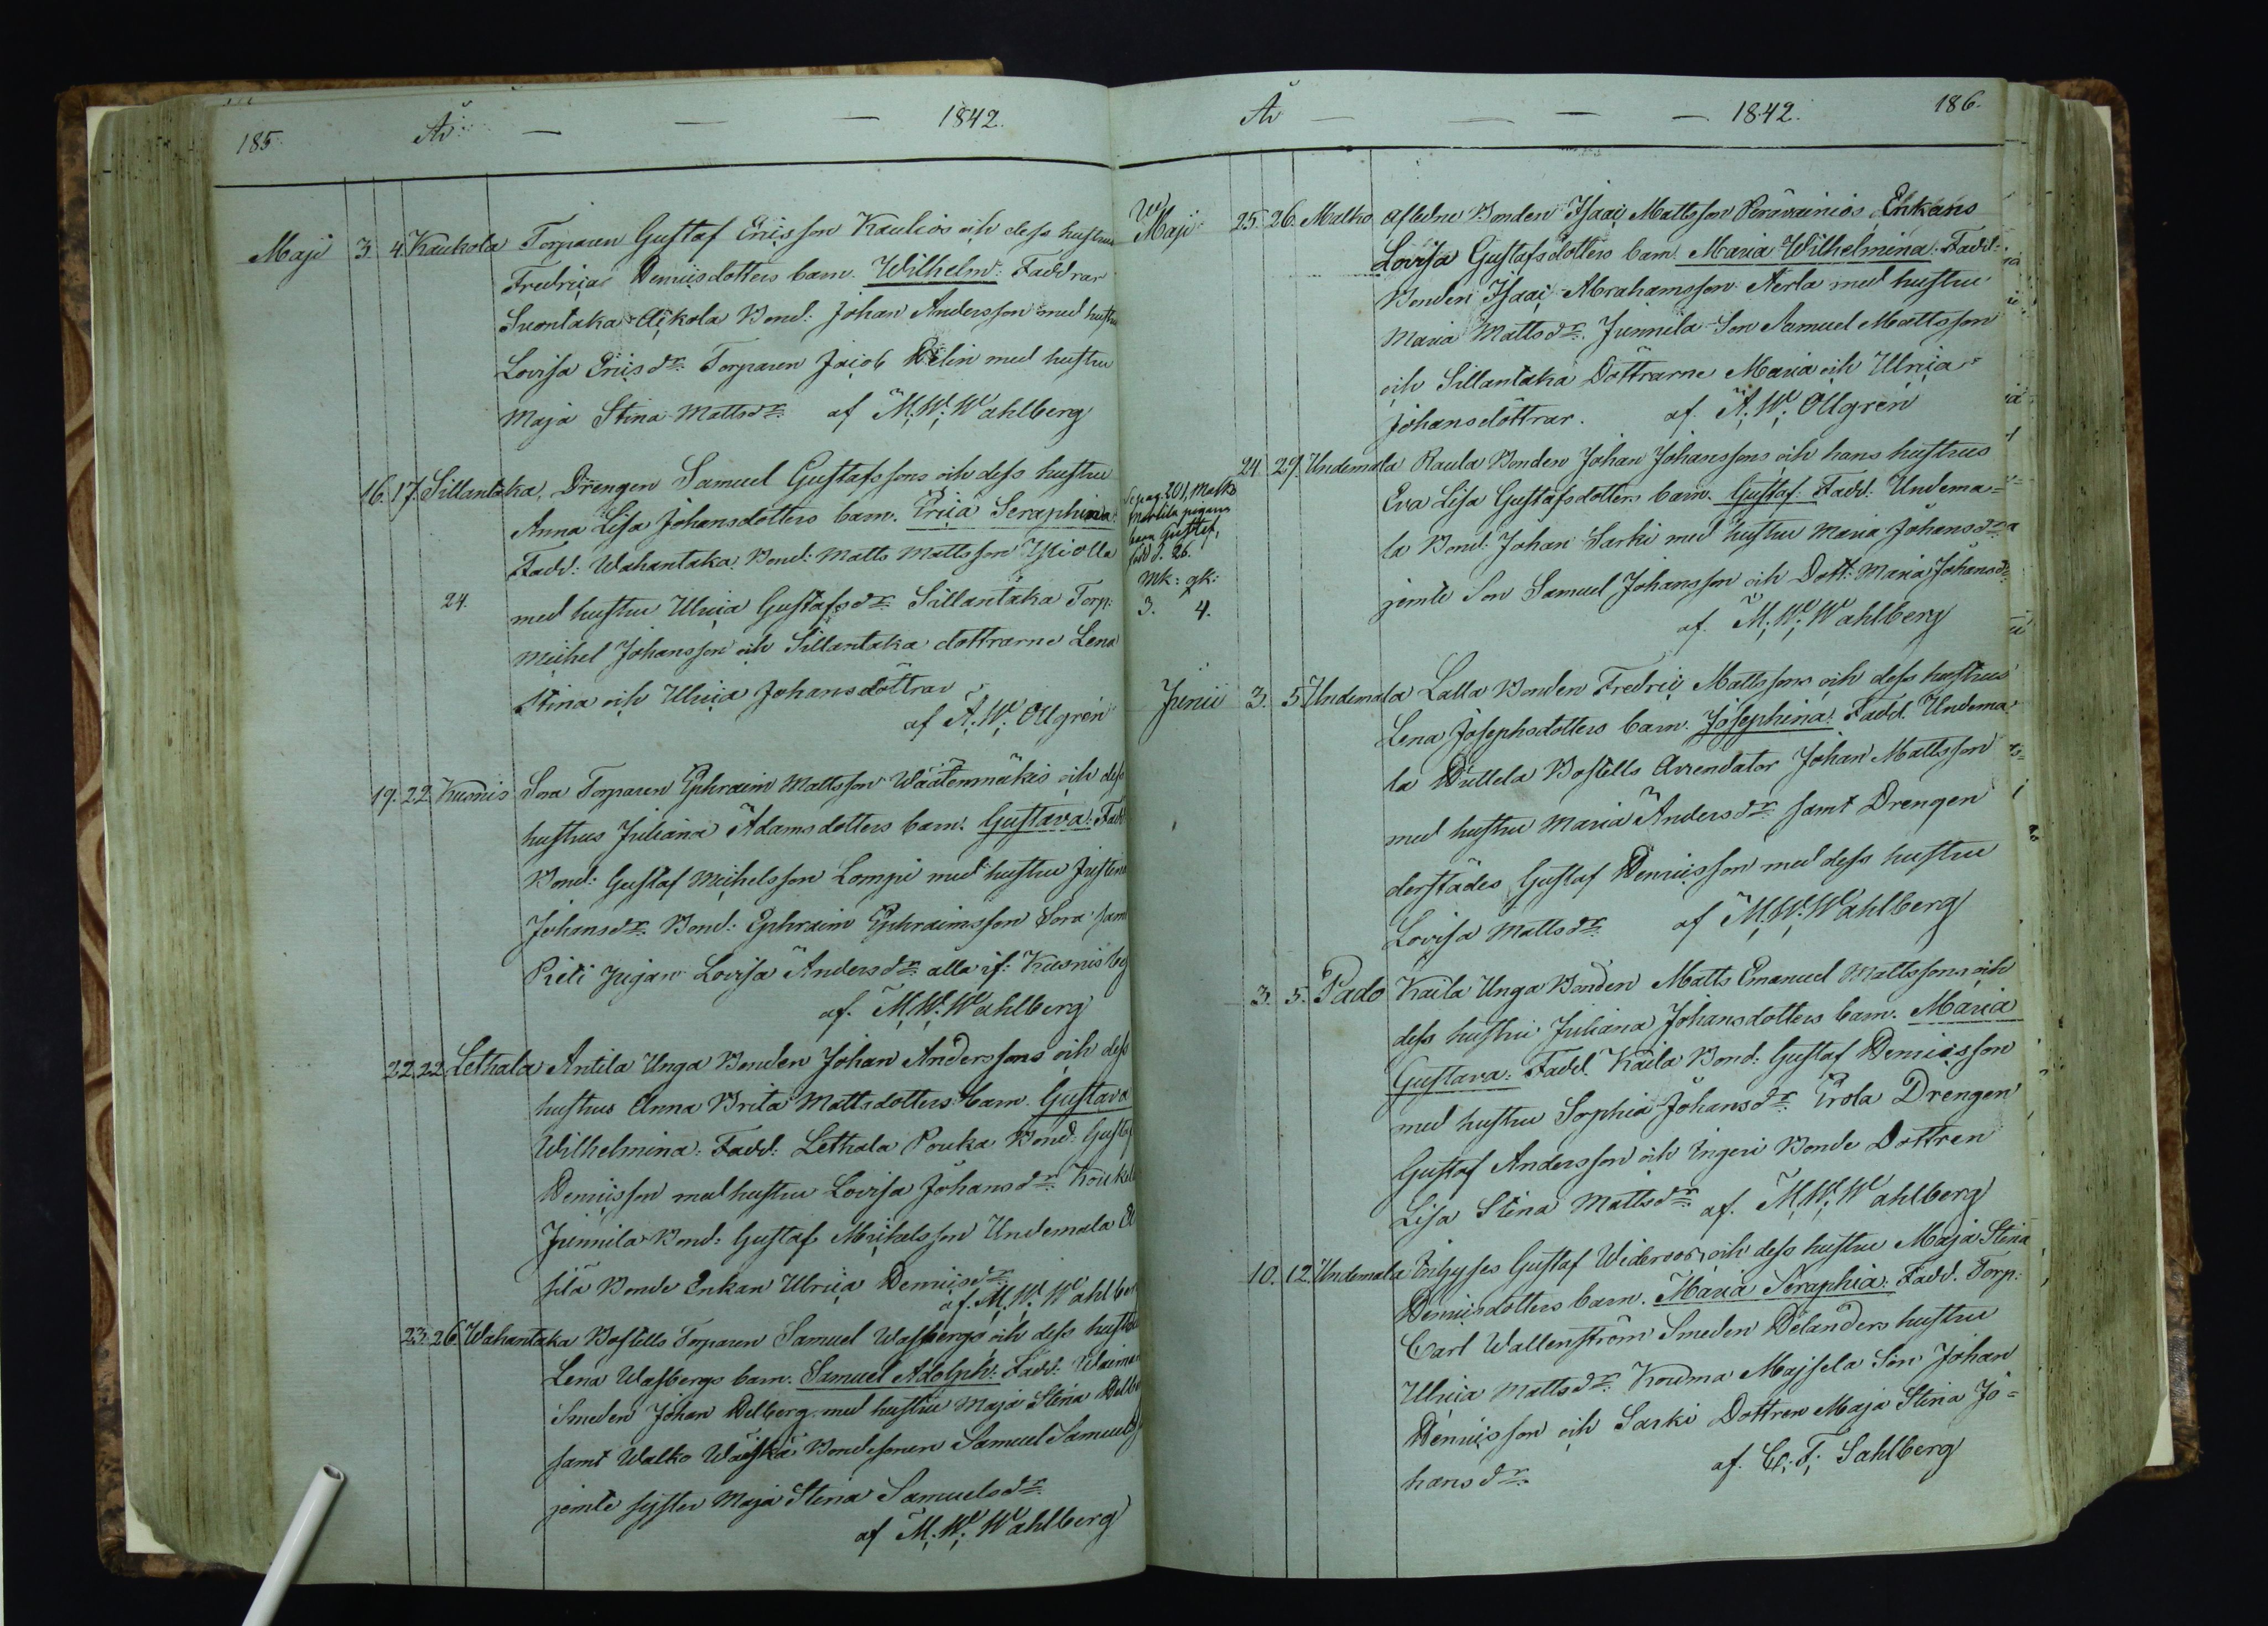 185. År — — — 1842.
Maji 3. 4. Kaukola Torparen Gustaf Ericsson Kaulios och dess hustrus
Fredrica Henricsdotters barn. Wilhelm: Faddrar
Suontaka Aickola Bond: Johan Andersson med hustru
Lovisa Ericsdr: Torparen Jacob Melin med hustru
Maja Stina Mattsdr: af M. W. Wahlberg
16. 17. Sillantaka, Drengen Samuel Gustafssons och dess hustru
Anna Lisa Johansdotters barn. Erica Seraphina:
Fadd: Wahantaka Bond: Matts Mattsson Ysiolla
24. med hustru Ulrica Gustafsdr: Sillantaka Torp:
Michel Johansson och Sillantaka dottrarne Lena
Stina och Ulrica Johansdöttrar
af A. W. Ollgren
19. 22. Kusnis Sora Torparen Ephraim Mattsson Wäätenmäkis och dess
hustrus Juliana Adamsdotters barn. Gustava: Fadd
Bond: Gustaf Michelsson Lempi med hustru Justina
Johansdr: Bond: Ephraim Ephraimsson Sora samt
Pieti Jugan Lovisa Andersdr: alla if: Kusnis by
af. M. W. Wahlberg
22. 22. Lethala Antila Unga Bonden Johan Anderssons och dess
hustrus Anna Brita Mattsdotters barn. Gustava
Wilhelmina: Fadd: Lethala Pouka Bond: Gustaf
Henricsson med hustru Lovisa Johansdr: Koukela
Junnila Bond: Gustaf Michelsson Undemala
silä Bonde Enkan Ulrica Henricsdr:
af. M. W. Wahlberg
23. 26. Wahantaka Bostells Torparen Samuel Wassbergs och dess hustrus
Lena Wassbergs barn. Samuel Adolph: Fadd:
Smeden Johan Helberg med hustru Maja Stina
samt Walko Wäiskä Bondesonen Samuel Samuels
jemte syster Maja Stina Samuelsdr:
af M. W. Wahlberg
År — — — 1842. 186.
Maji 25. 26. Malko aflidne Bonden Isaac Mattsson Perävainios Enkans
Lovisa Gustafsdotters barn. Maria Wilhelmina: Fadd:
Bonden Isaac Abrahamsson Aerla med hustru
Maria Mattsdr: Junnila Son Samuel Mattsson
och Sillantaka Döttrarne Maria och Ulrica
Johansdöttrar. af. A. W. Ollgren
24. 29. Undemala Raula Bonden Johan Johanssons och hans hustrus
Eva Lisa Gustafsdotters barn. Gustaf: Fadd: Undema=
la Bond: Johan Sarki med hustru Maria Johansdr:
jemte Son Samuel Johansson och Dott: Maria Johansdr:
af. M. W. Wahlberg
Se pag. 201, Malko
Markila pigans
barn Gustaf,
född d. 26.
Mk: qk:
3. 4.
Junii 3. 5. Undemala Lalla Bonden Fredric Mattssons och dess hustrus
Lena Josephsdotters barn. Josephina: Fadd. Undema
la Duttela Bostells Arrendator Johan Mattsson
med hustru Maria Andersdr: samt Drengen
derstädes Gustaf Henricsson med dess hustru
Lovisa Mattsdr: af M. W. Wahlberg
3. 5. Pado Kaila Unga Bonden Matts Emanuel Mattssons och
dess hustru Juliana Johansdotters barn. Maria
Gustava: Fadd. Kaila Bond: Gustaf Henricsson
med hustru Sophia Johansdr: Erola Drengen
Gustaf Andersson och Ingeri Bonde Dottren
Lisa Stina Mattsdr: af. M. W. Wahlberg
10. 12. Undemala Inhyses Gustaf Wideroos och dess hustru Maja Stina
Henricsdotters barn. Maria Seraphia: Fadd. Torp:
Carl Wallenström Smeden Delanders hustru
Ulrica Mattsdr: Kouma Majsela Son Johan
Henricsson och Sarki Dottren Maja Stina Jo=
hansdr: af. C. F. Sahlberg